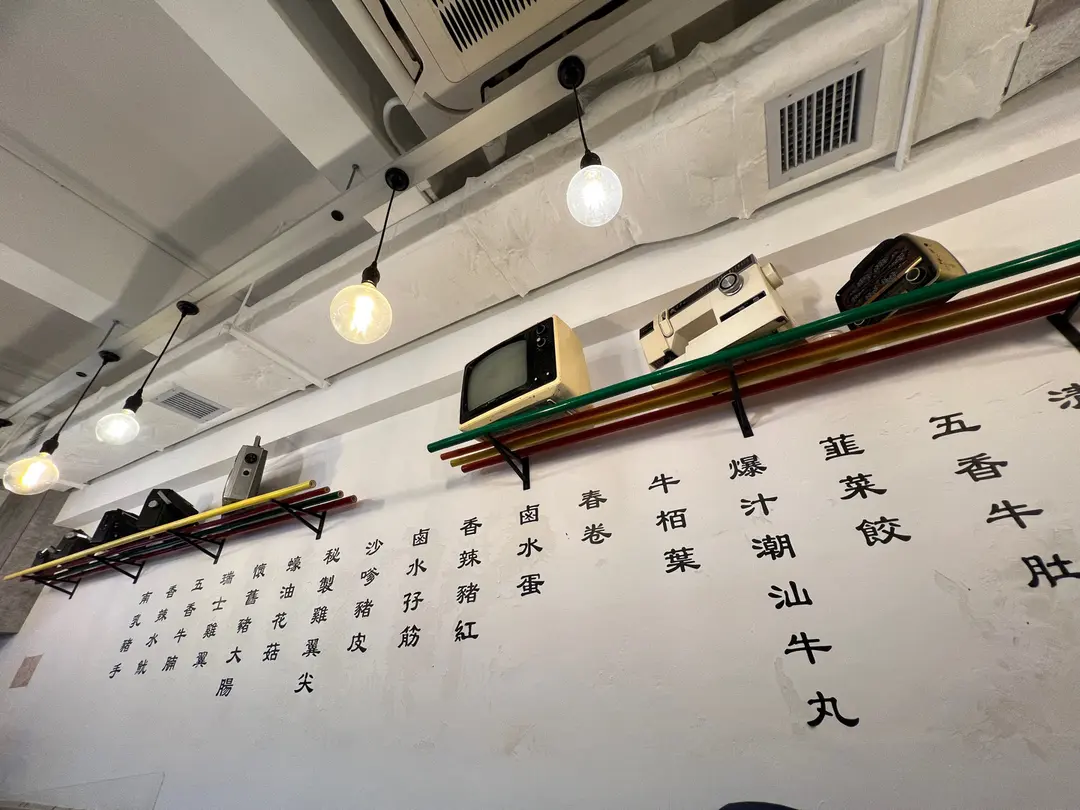 五香牛肚
韮菜餃
爆汁潮汕牛丸
牛栢葉
春卷
鹵水蛋
香辣豬紅
鹵水孖筋
沙嗲豬皮
秘製雞翼尖
蠔油花菇
懷舊豬大腸
瑞士雞翼
五香牛腩
香辣水魷
南乳豬手